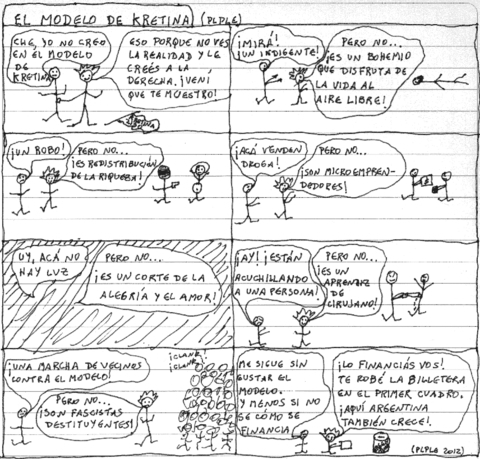 EL MODELO DE KRETINA (PLPLE)
CHE, YO NO CREO
EN EL MODELO
DE
KRETINA
ESO PORQUE NO VES
LA REALIDAD Y LE
CREÉS A LA
DERECHA. ¡VENÍ
QUE TE MUESTRO!
¡MIRÁ!
¡UN INDIGENTE!
PERO NO...
¡ES UN BOHEMIO
QUE DISFRUTA DE
LA VIDA AL
AIRE LIBRE!
¡UN ROBO!
PERO NO...
¡ES REDISTRIBUCIÓN
DE LA RIQUEZA!
¡ACÁ VENDEN
DROGA!
PERO NO...
¡SON MICROEMPREN-
DEDORES!
UY, ACÁ NO
HAY LUZ
PERO NO...
¡ES UN CORTE DE LA
ALEGRÍA Y EL AMOR!
¡AY! ¡ESTÁN
ACUCHILLANDO
A UNA PERSONA!
PERO NO...
¡ES UN
APRENDIZ
DE
CIRUJANO!
¡UNA MARCHA DE VECINOS
CONTRA EL MODELO!
PERO NO...
¡SON FASCISTAS
DESTITUYENTES!
¡CLANK!
¡CLANK!
ME SIGUE SIN
GUSTAR EL
MODELO.
Y MENOS SI NO
SE CÓMO SE
FINANCIA
¡LO FINANCIÁS VOS!
TE ROBÉ LA BILLETERA
EN EL PRIMER CUADRO.
¡AQUÍ ARGENTINA
TAMBIÉN CRECE!
(PLPLE 2012)